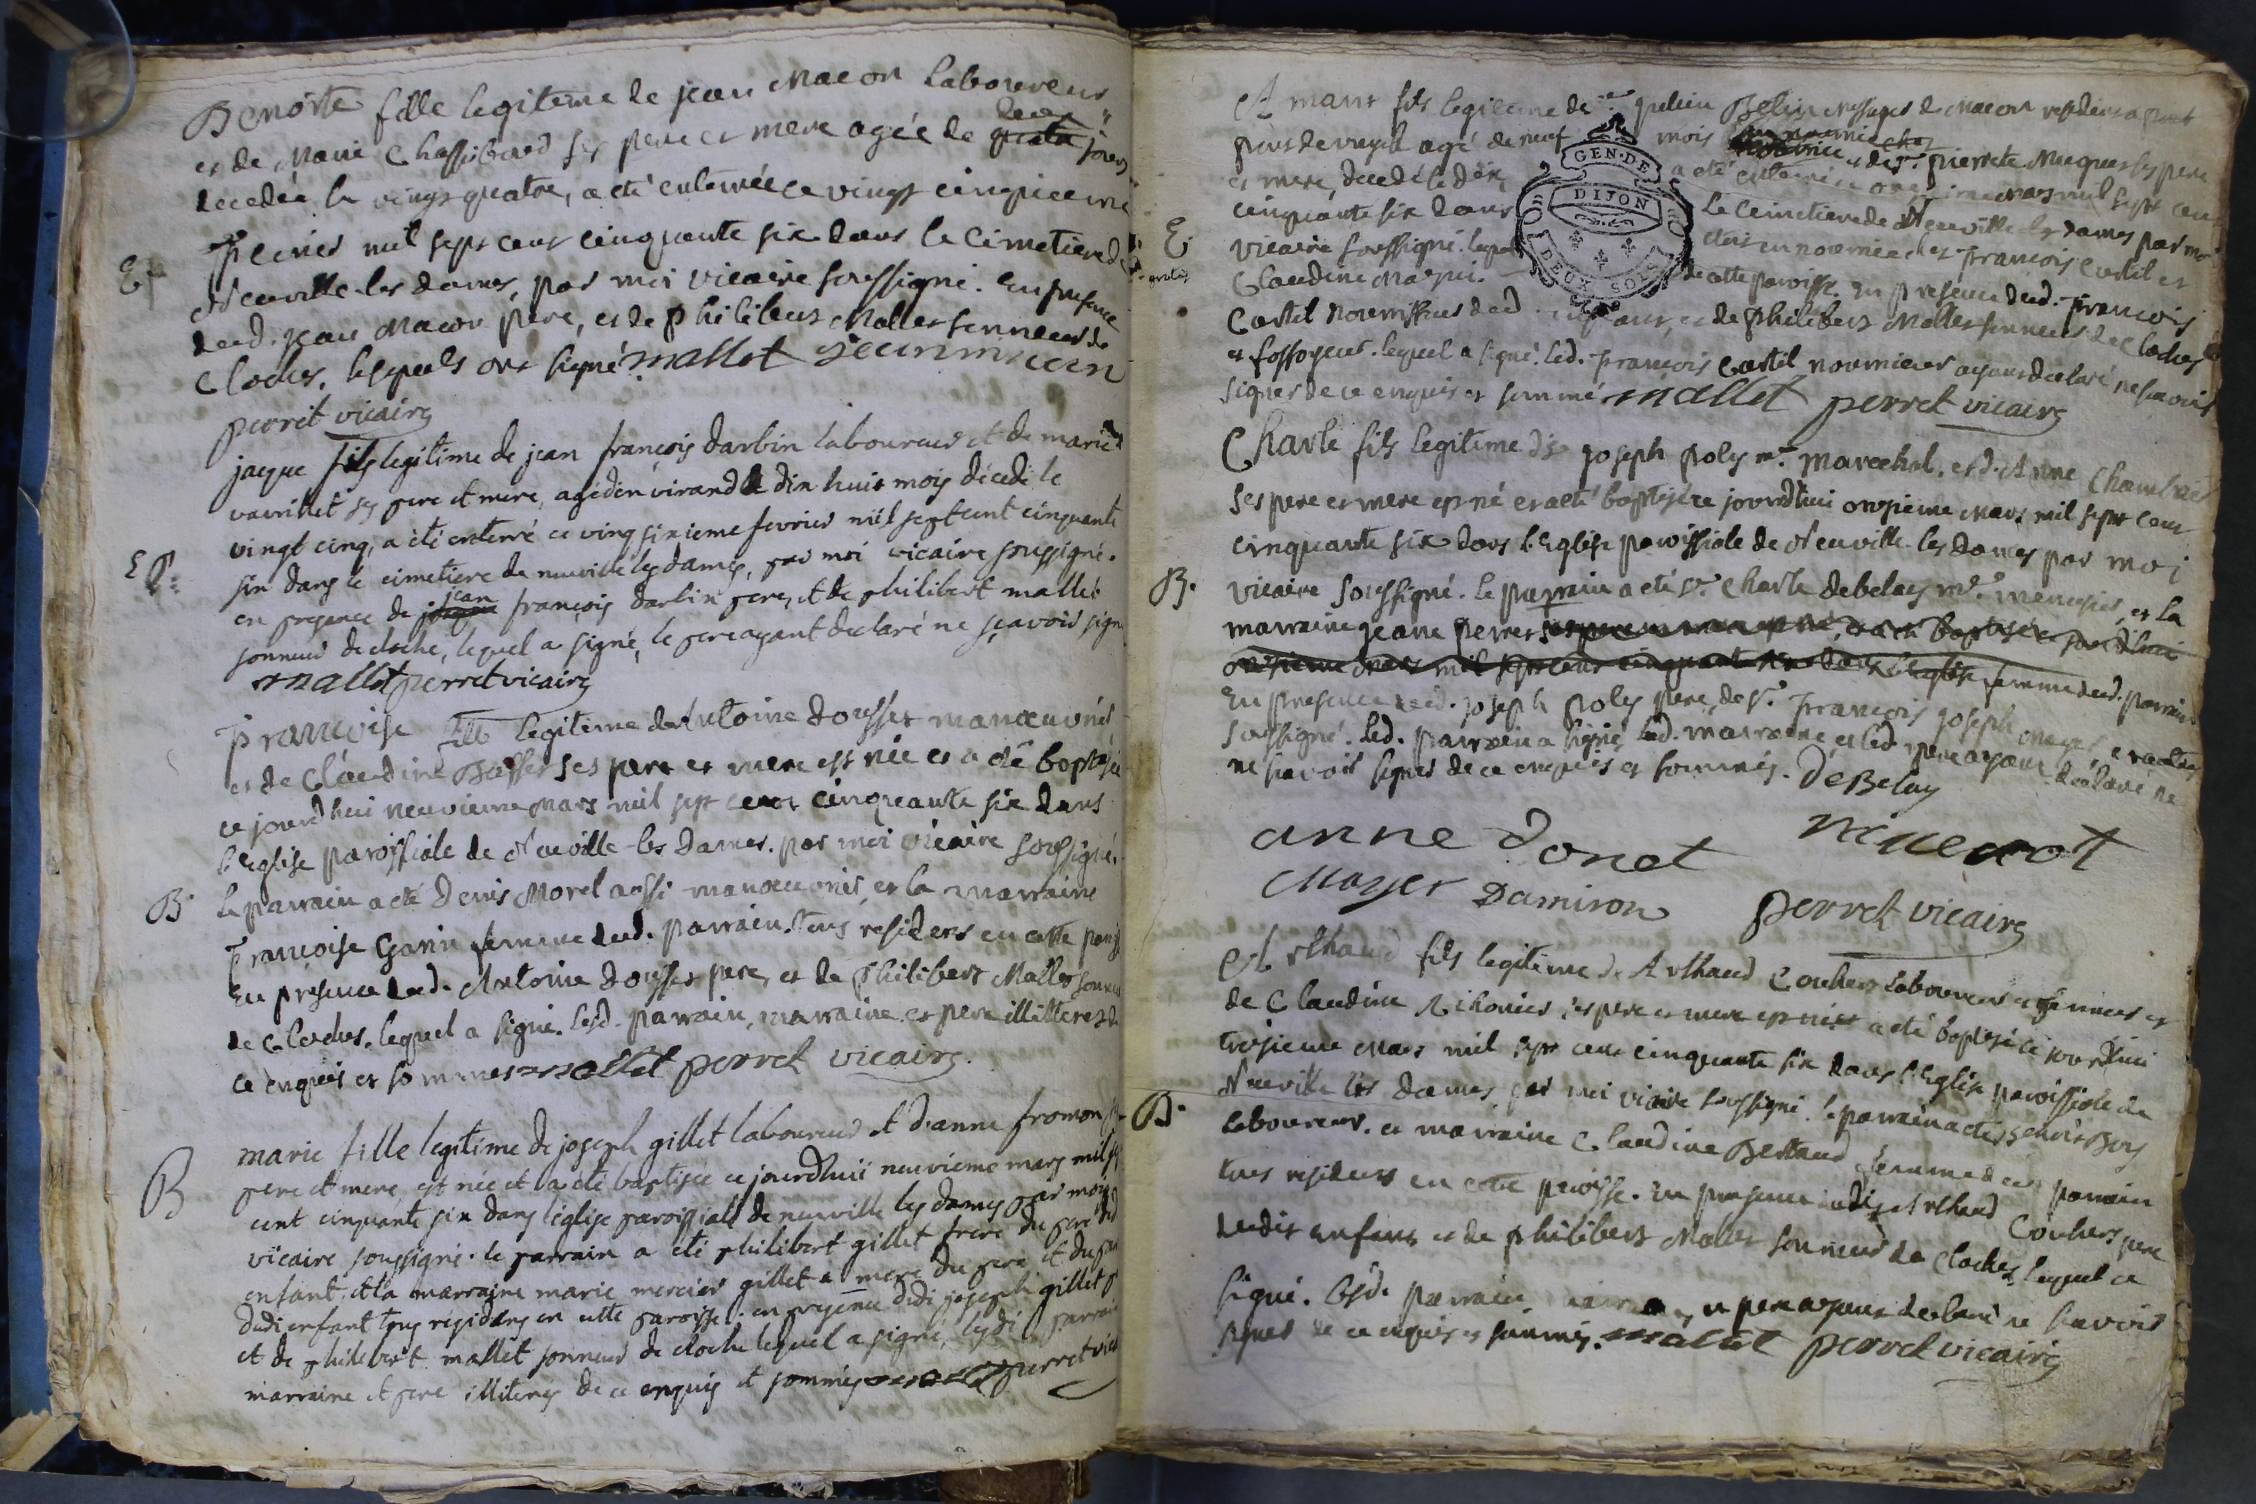 Benoite fille legitime de jean Macon Laboureur
et de Marie Chassibord ses pere et mere agée de jours
decedée le vingt quatre, a eté enterrée ce vingt cinquieme
E fevrier mil sept cent cinquante six dans le Cimetiere de
Neuville-les dames, par moi vicaire soussigné. En presence
dud. jean Macon pere, et de philibert Mallet sonneur de
Cloches, lesquels ont signé mallet jean macon
perret vicaire
jaque fils legitime de jean françois darbin laboureur et de marie
vavrillet ses pere et mere, agé denvirand dix huit mois décedé le
vingt cinq, a été enterré ce ving sixieme fevrier mil sept cent cinquante
E six dans le cimetiere de neuville les dames, par moi vicaire soussigné.
en presence de jean françois darbin pere, et de philibert mallet
sonneur de cloche, lequel a signé, le pere ayant declaré ne sçavoir signer
mallet perret vicaire
françoise fille legitime de Antoine dousset manœuvrier
et de Claudine Basset ses pere et mere est née et a eté baptisée
ce jourd'hui neuvieme Mars mil sept cent cinquante six dans
l'eglise paroissiale de Neuville-les Dames. par moi vicaire soussigné.
B. le parrain a eté Denis Morel aussi manœuvrier, et la marraine
Françoise Garin femme dud. parrain. tous residens en cette paroisse
En presence dud. Antoine dousset pere, et de philibert Mallet sonneur
de Cloches. lequel a signé. lesd. parrain, marraine et pere illitteres de
ce enquis et sommes mallet perret vicaire.
marie fille legitime de joseph gillet laboureur et d'anne fromon
B pere et mere, est née et a été baptisée ce jourdhuï neuvieme mars mil sept
cent cinquante six dans léglise paroissiale de neuville les dames par moy
vicaire soussigné. le parrain a été philibert gillet frere du pere dud
enfant, et la marraine marie mercier gillet mere du pere et du
dudi enfant tous résidens en cette paroisse. en presence dudi joseph gillet
et de philibert mallet sonneur de cloche lequel a signé, lesdi parrain
marraine et pere illiteres de ce enquis et sommés mallet perret vicaire
Amant fils legitime de Belin Messager de Macon resident a pont
agé de neuf mois et de pierrete Muguet ses pere
et mere, decedé le dix, a eté enterré ce onzieme mars mil sept cent
cinquante six dans le Cimetiere de Neuville les dames par moi
E. vicaire soussigné. lequel etait en nourrice chez François Cortil et
Claudine Maqui. de cette paroisse. En presence dud. François
Cortil nourrissier dud. enfant, et de philibert Mallet sonneur de Cloches
et fossoyeur. lequel a signé. led. François Cortil nourricier ayant declaré ne sçavoir
signer de ce enquis et sommé mallet perret vicaire
Charle fils legitime de joseph poly me. marechal. et d'Anne Chambrier
ses pere et mere est né et a eté baptisé ce jourd'hui onzieme Mars mil sept cent
cinquante six dans l'Eglise paroissiale de Neuville-les dames par moi
B. vicaire soussigné. le parrain a eté sr. Charle debelay me. menusier, et la
marraine jeane perret ses pere et mere est né, et a eté baptisé ce jourd'hui
onzieme Mars mil sept cent cinquante six dans l'Eglise femme dud. parrain
En presence dud. joseph poly pere, de sr. François joseph Moyer,
soussigné. led. parrain a signé led. marraine et led. pere ayant declaré ne
ne sçavoir signer de ce enquis et sommés. DeBelay
anne donet
Moyer Damiron perret vicaire
Arthaud fils legitime de Arthaud Couhers laboureur et et
de Claudine ses pere et mere est né et a eté baptisé ce jourd'hui
treisieme Mars mil sept cent cinquante six dans l'Eglise paroissiale de
Neuville les dames par moi vicaire soussigné. le parrain a eté
B. laboureur. et marraine Claudine Bertaud femme dud. parrain
tous residens en cette paroisse. En presence dudit Arthaud Couhers pere
dudit enfant et de philibert Mallet sonneur de Cloches, lequel a
signé. lesd. parrain, marraine, et pere ayant declaré ne sçavoir
signer de ce enquis et sommés. mallet perret vicaire
GEN. DE
DIJON
DEUX SOLS